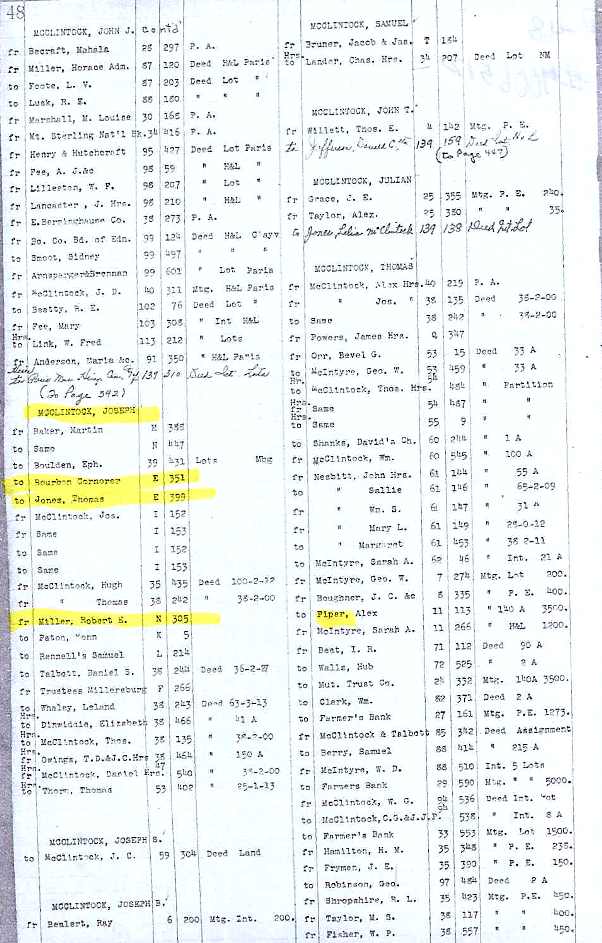 48
MCCLINTOCK, JOHN J. Cont'd
fr Becraft, Mahala 28 297 P. A.
fr Miller, Horace Adm. 87 120 Deed H&L Paris
to Foote, L. V. 87 203 Deed Lot "
to Lusk, R. E. 88 180 " " "
fr Marshall, M. Louise 30 168 P. A.
fr Mt. Sterling Nat'l Bk. 34 416 P. A.
fr Henry & Hutchcraft 95 427 Deed Lot Paris
fr Fee, A. J.&c 98 59 " H&L "
fr Lilleston, W. F. 98 207 " Lot "
fr Lancaster, J. Hrs. 98 210 " H&L "
fr E.Berninghause Co. 38 273 P. A.
fr Bo. Co. Bd. of Edn. 99 124 Deed H&L C'ayv
to Smoot, Sidney 99 497 " " "
fr Arnsparger&Brennan 99 601 " Lot Paris
fr McClintock, J. D. 40 311 Mtg. H&L Paris
to Beatty, H. E. 102 76 Deed Lot "
fr Fee, Mary 103 308 " Int H&L
Hrs.
to Link, W. Fred 113 212 " Lots
fr Anderson, Maria &c. 91 350 " H&L Paris
139 310 Deed Lot
(To Page 392)
MCCLINTOCK, JOSEPH
fr Baker, Martin M 388
to Same N 447
to Boulden, Eph. 39 431 Lots Mbg
to Bourbon Cornorer E 351
to Jones, Thomas E 399
fr McClintock, Jos. I 152
fr Same I 153
to Same I 152
to Same I 153
fr McClintock, Hugh 35 435 Deed 100-2-12
fr " Thomas 38 242 " 38-2-00
fr Miller, Robert E. N 305
to Paton, K 5
to Rannell's Samuel L 214
to Talbott, Daniel S. 38 244 Deed 36-2-27
fr Trustees Millersburg F 266
to Whaley, Leland 38 243 Deed 63-3-13
Hrs.
to Dinwiddie, Elizabeth 38 466 " 41 A
Hrs.
to McClintock, Thos. 38 135 " 38-2-00
Hrs.
fr Owings, T.D.&J.C.Hrs 38 464 " 150 A
Hrs. 47
fr McClintock, Daniel Hrs. 540 " 38-2-00
Hrs.
to Thorn, Thomas 53 402 " 25-1-13
MCCLINTOCK, JOSEPH S.
to McClintock, J. C. 59 304 Deed Land
MCCLINTOCK, JOSEPH B.
fr Bealert, Ray 6 200 Mtg. Int. 200.
MCCLINTOCK, SAMUEL
fr Bruner, Jacob & Jas. T 184
Hrs.
to Lander, Chas. Hrs. 34 207 Deed Lot NM
MCCLINTOCK, JOHN T.
fr Willett, Thos. E. 4 142 Mtg. P. E.
to 139 159 Deed
(to Page 447)
MCCLINTOCK, JULIAN
fr Grace, J. E. 25 355 Mtg. P. E. 240.
fr Taylor, Alex. 25 380 " " 35.
to Jones, Lelia McClintock 139 138 Deed Int Lot
MCCLINTOCK, THOMAS
fr McClintock, Alex Hrs. 40 219 P. A.
fr " Jos. " 38 135 Deed 38-2-00
to Same 38 242 " 38-2-00
fr Powers, James Hrs. Q 347
fr Orr, Bevel G. 53 15 Deed 33 A
to McIntyre, Geo. W. 53 459 " 33 A
Hr. 54
to McClintock, Thos. Hrs. 484 " Partition
Hrs.
fr Same 54 487 " "
Hrs.
to Same 55 9 " "
to Shanks, David's Ch. 60 244 " 1 A
fr McClintock, Wm. 60 545 " 100 A
fr Nesbitt, John Hrs. 61 144 " 55 A
to " Sallie 61 146 " 65-2-09
to " Wm. S. 61 147 " 31 A
fr " Mary L. 61 149 " 28-0-12
to " Margaret 61 453 " 38 2-11
to McIntyre, Sarah A. 62 46 " Int. 21 A
fr McIntyre, Geo. W. 7 274 Mtg. Lot 200.
fr Boughner, J. C. &c 8 335 " P. E. 400.
to Piper, Alex 11 113 " 140 A 3500.
fr McIntyre, Sarah A. 11 266 " H&L 1200.
fr Best, I. R. 71 112 Deed 90 A
to Walls, Hub 72 525 " 2 A
to Mut. Trust Co. 24 332 Mtg. 140A 3500.
to Clark, Wm. 82 371 Deed 2 A
to Farmer's Bank 27 161 Mtg. P.E. 1273.
fr McClintock & Talbott 85 342 Deed Assignment
to Berry, Samuel 88 414 " 215 A
fr McIntyre, W. D. 88 510 Int. 5 Lots
to Farmers Bank 29 590 Mtg. " " 5000.
fr McClintock, W. G. 94 536 Deed Int. Lot
94
to McClintock,C.G.&J.J.F. 538 " Int. 8 A
to Farmer's Bank 33 553 Mtg. Lot 1500.
fr Hamilton, H. M. 35 348 " P. E. 235.
fr Frymen, J. E. 35 390 " P. E. 150.
to Robinson, Geo. 97 484 Deed 2 A
fr Shropshire, R. L. 35 423 Mtg. P.E. 450.
fr Taylor, M. S. 38 117 " " 400.
fr Fisher, W. P. 38 557 " " 450.